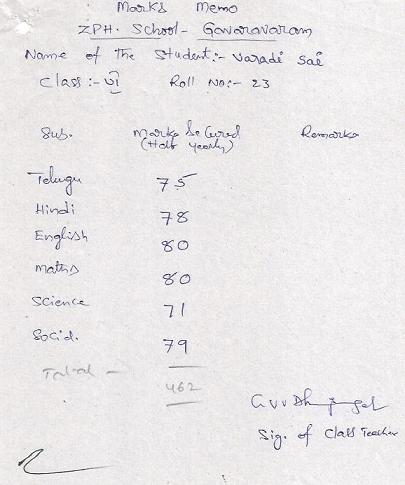 Marks Memo
ZPH. School - Gavaravaram
Name of the Student:- Varadi Sai
Class:- VI Roll No:- 23
Sub. Marks Secured Remarks
(Half yearly)
Telugu 75
Hindi 78
English 80
Maths 80
Science 71
Social. 79
Total - 462
Sig. of Class Teacher